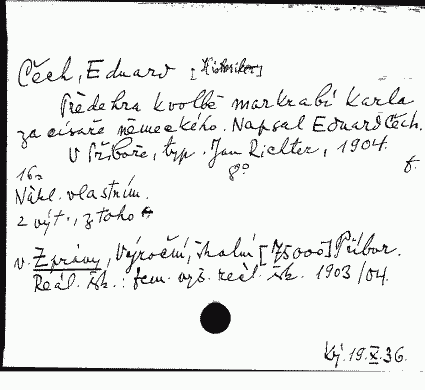 Čech, Eduard [Historiker]
Předehra k volbě markrabí Karla
za císaře německého. Napsal Eduard Čech.
V Příboře, typ. Jan Richter, 1904.
8° f.
16 s
Nákl. vlastním.
2 výt., z toho
v. Zprávy, Výroční, školní [75000] Příbor.
Reál. šk.: zem. vyš. reál. šk. 1903/04.
Ký. 19.X.36.